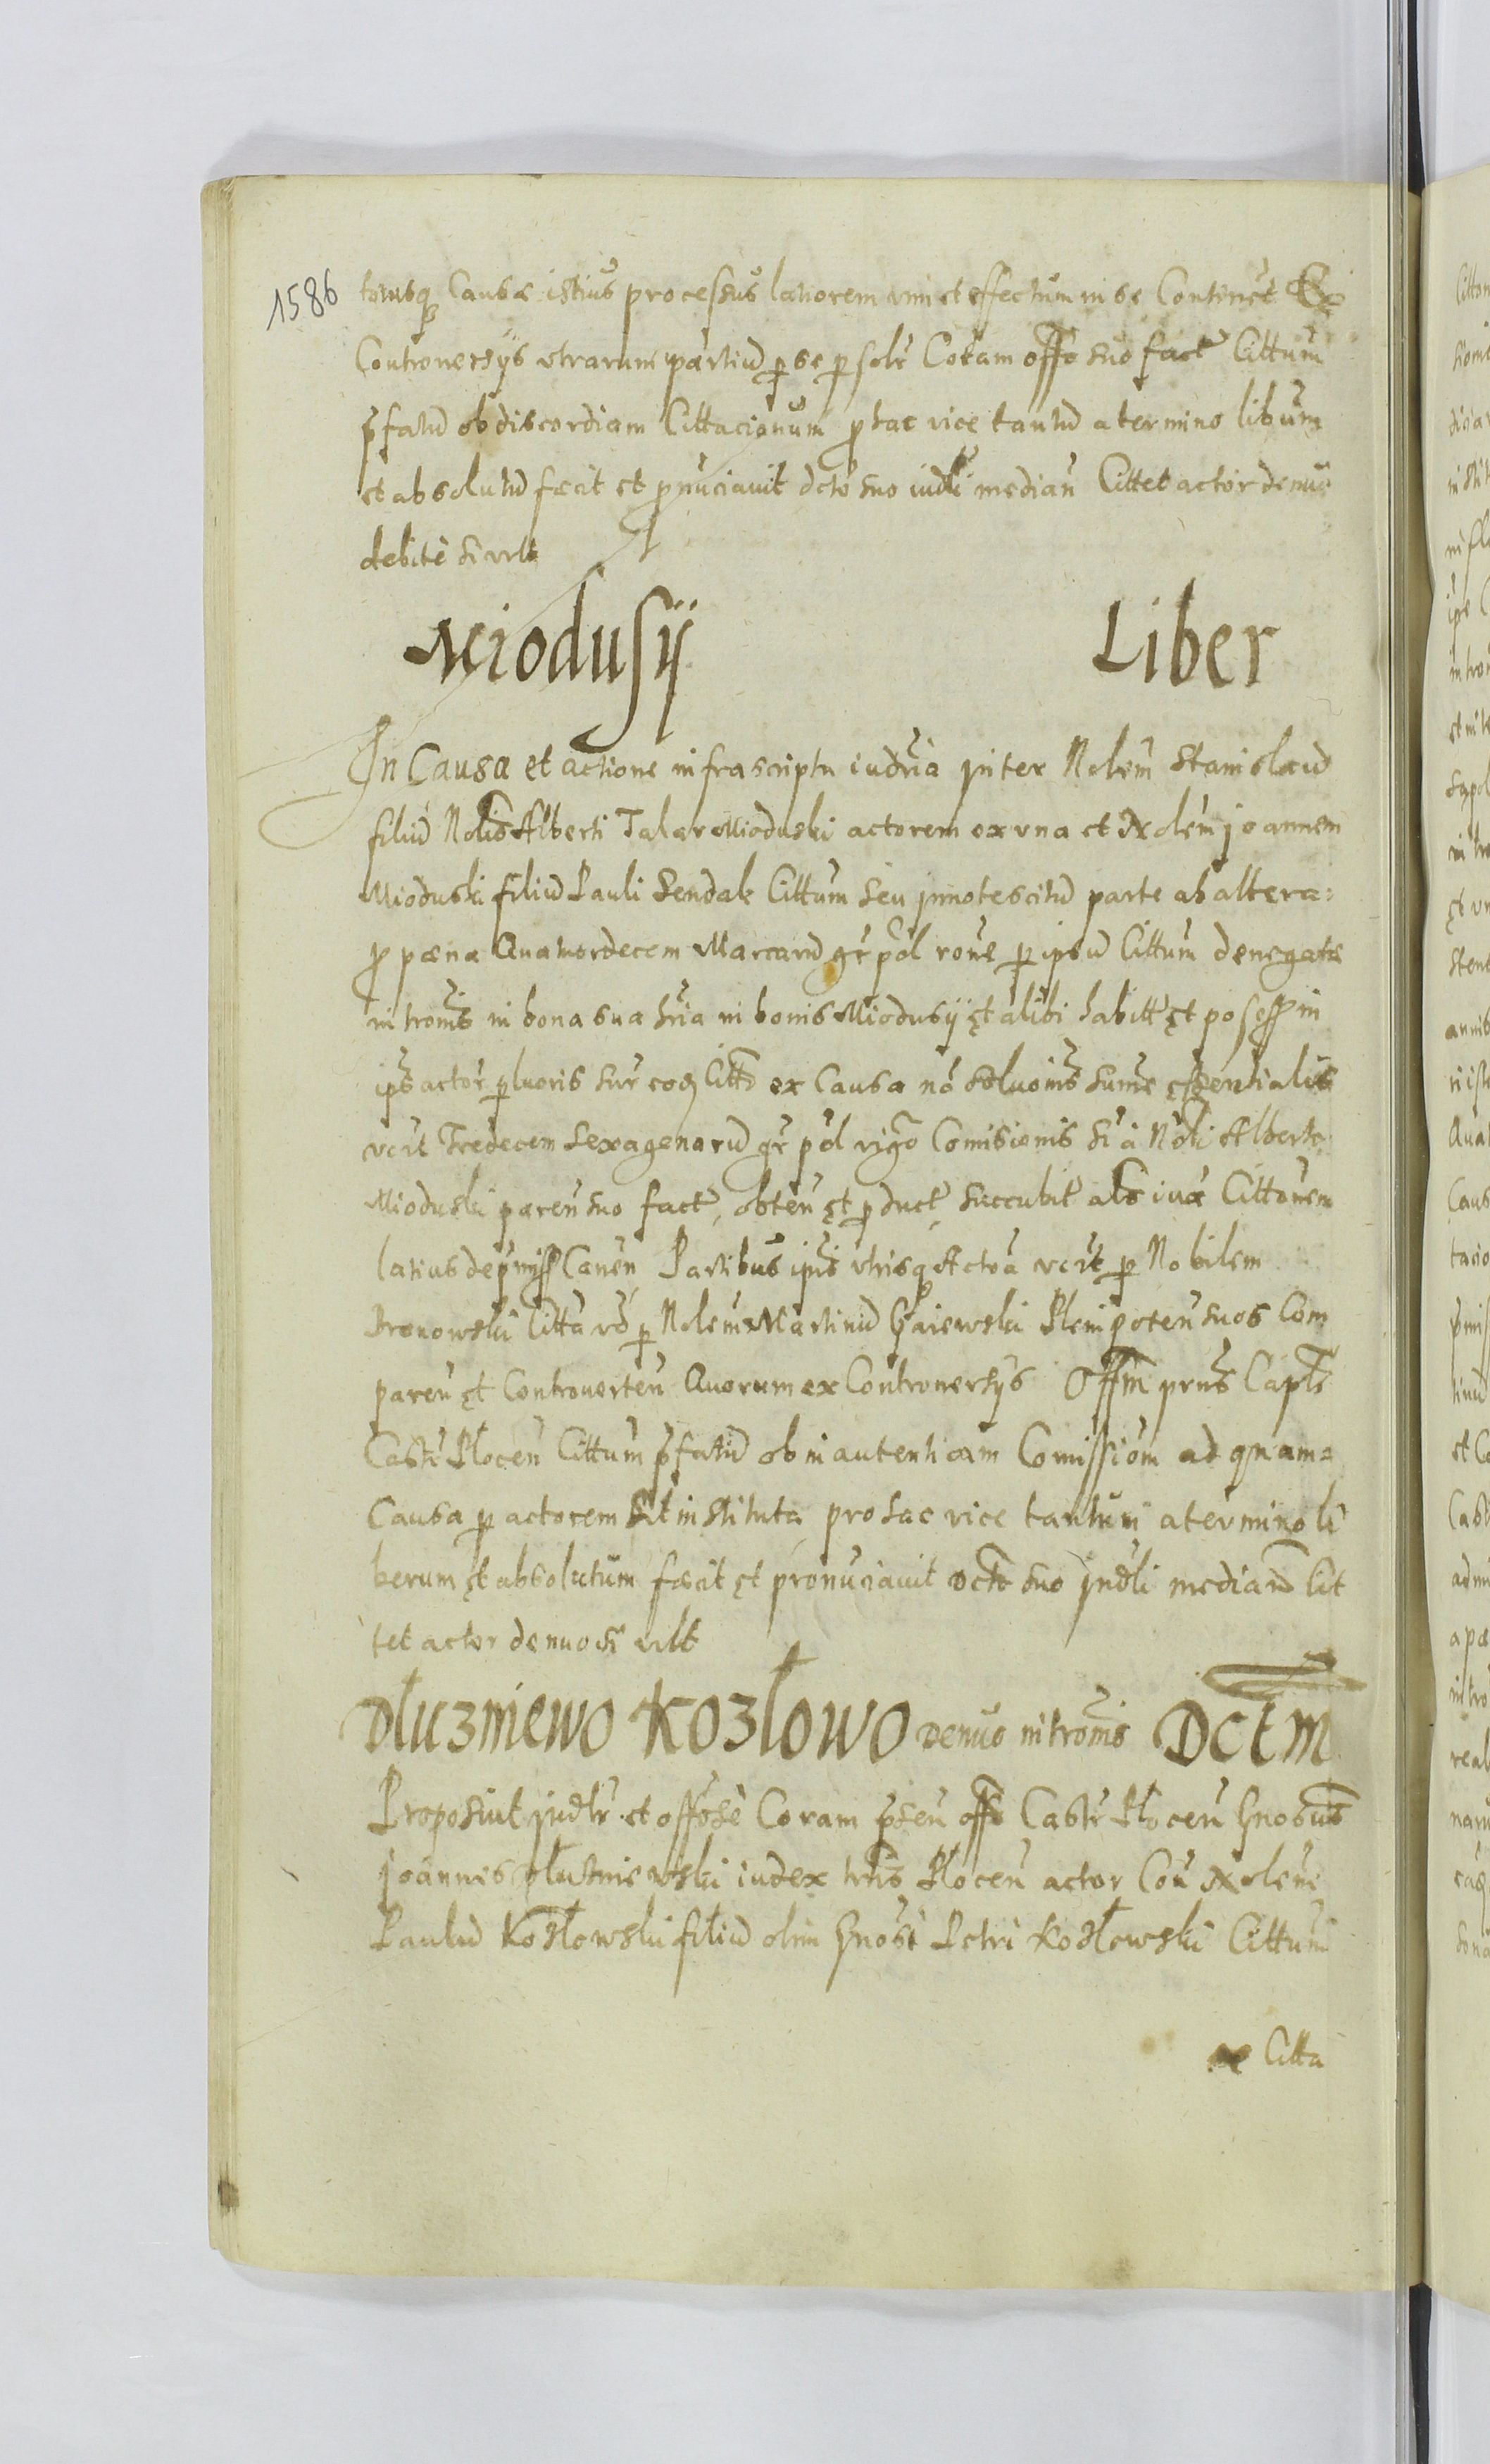 1586
totusq Causæ istius processus latiorem vim et effectum in se Continet Ex
Controuersijs vtrarum partiu p se psolr Coram offo suo fact Cittum
pfatu ob discordiam Cittacionum p hac vice tantu a termino libum
et absolutu fecit et pnuciauit dcto suo iudli median Cittet actor denuo
debite si vult
Miodusij Liber
In Causa et actione infrascripta iudria inter Nolem Stanislau
filiu Nolis Alberti Talar Mioduski actorem ex vna et Nolem joannem
Mioduski filiu Pauli Sendak Cittum seu innotescitu parte ab altera
p pæna Quatuordecem Marcaru gr pol rone p ipsu Cittum denegatæ
intromis in bona sua hria in bonis Miodusij et alibi habitt et possess in
ips actor pluoris sur eoq Citt ex Causa no soluonis sume essentialis
vcit Tredecem Sexagenaru gr pol vigo Comisionis si a Noli Alberto
Mioduski paren suo fact, obten et pduct, succubit als iux Cittonem
latius de pmiss Canen Partibus ipis vtrisq Actoa vcit p Nobilem
Bronowski Citta vo p Nolem Martinu Gaiewski Plenipoten suos Com
paren et Controuerten Quorum ex Controuersijs Offm prns Capts
Castr Plocen Cittum pfatu ob inautenticam Comissiom ad quam
Causa p actorem sit instituta pro hac vice tantum a termino li
berum et absolutum fecit et pronuciauit dcto suo judli median Cit
tet actor denuo si vult
Dłuzniewo Kozłowo denuo intromis Dctm
Proposuit judlr et offose Coram psen offo Castr Plocen Gnosus
Joannes Dłuzniewski iudex tris Plocen actor Con Nolem
Paulu Kozłowski filiu olim Gnosi Petri Kozłowski Cittum
Citta